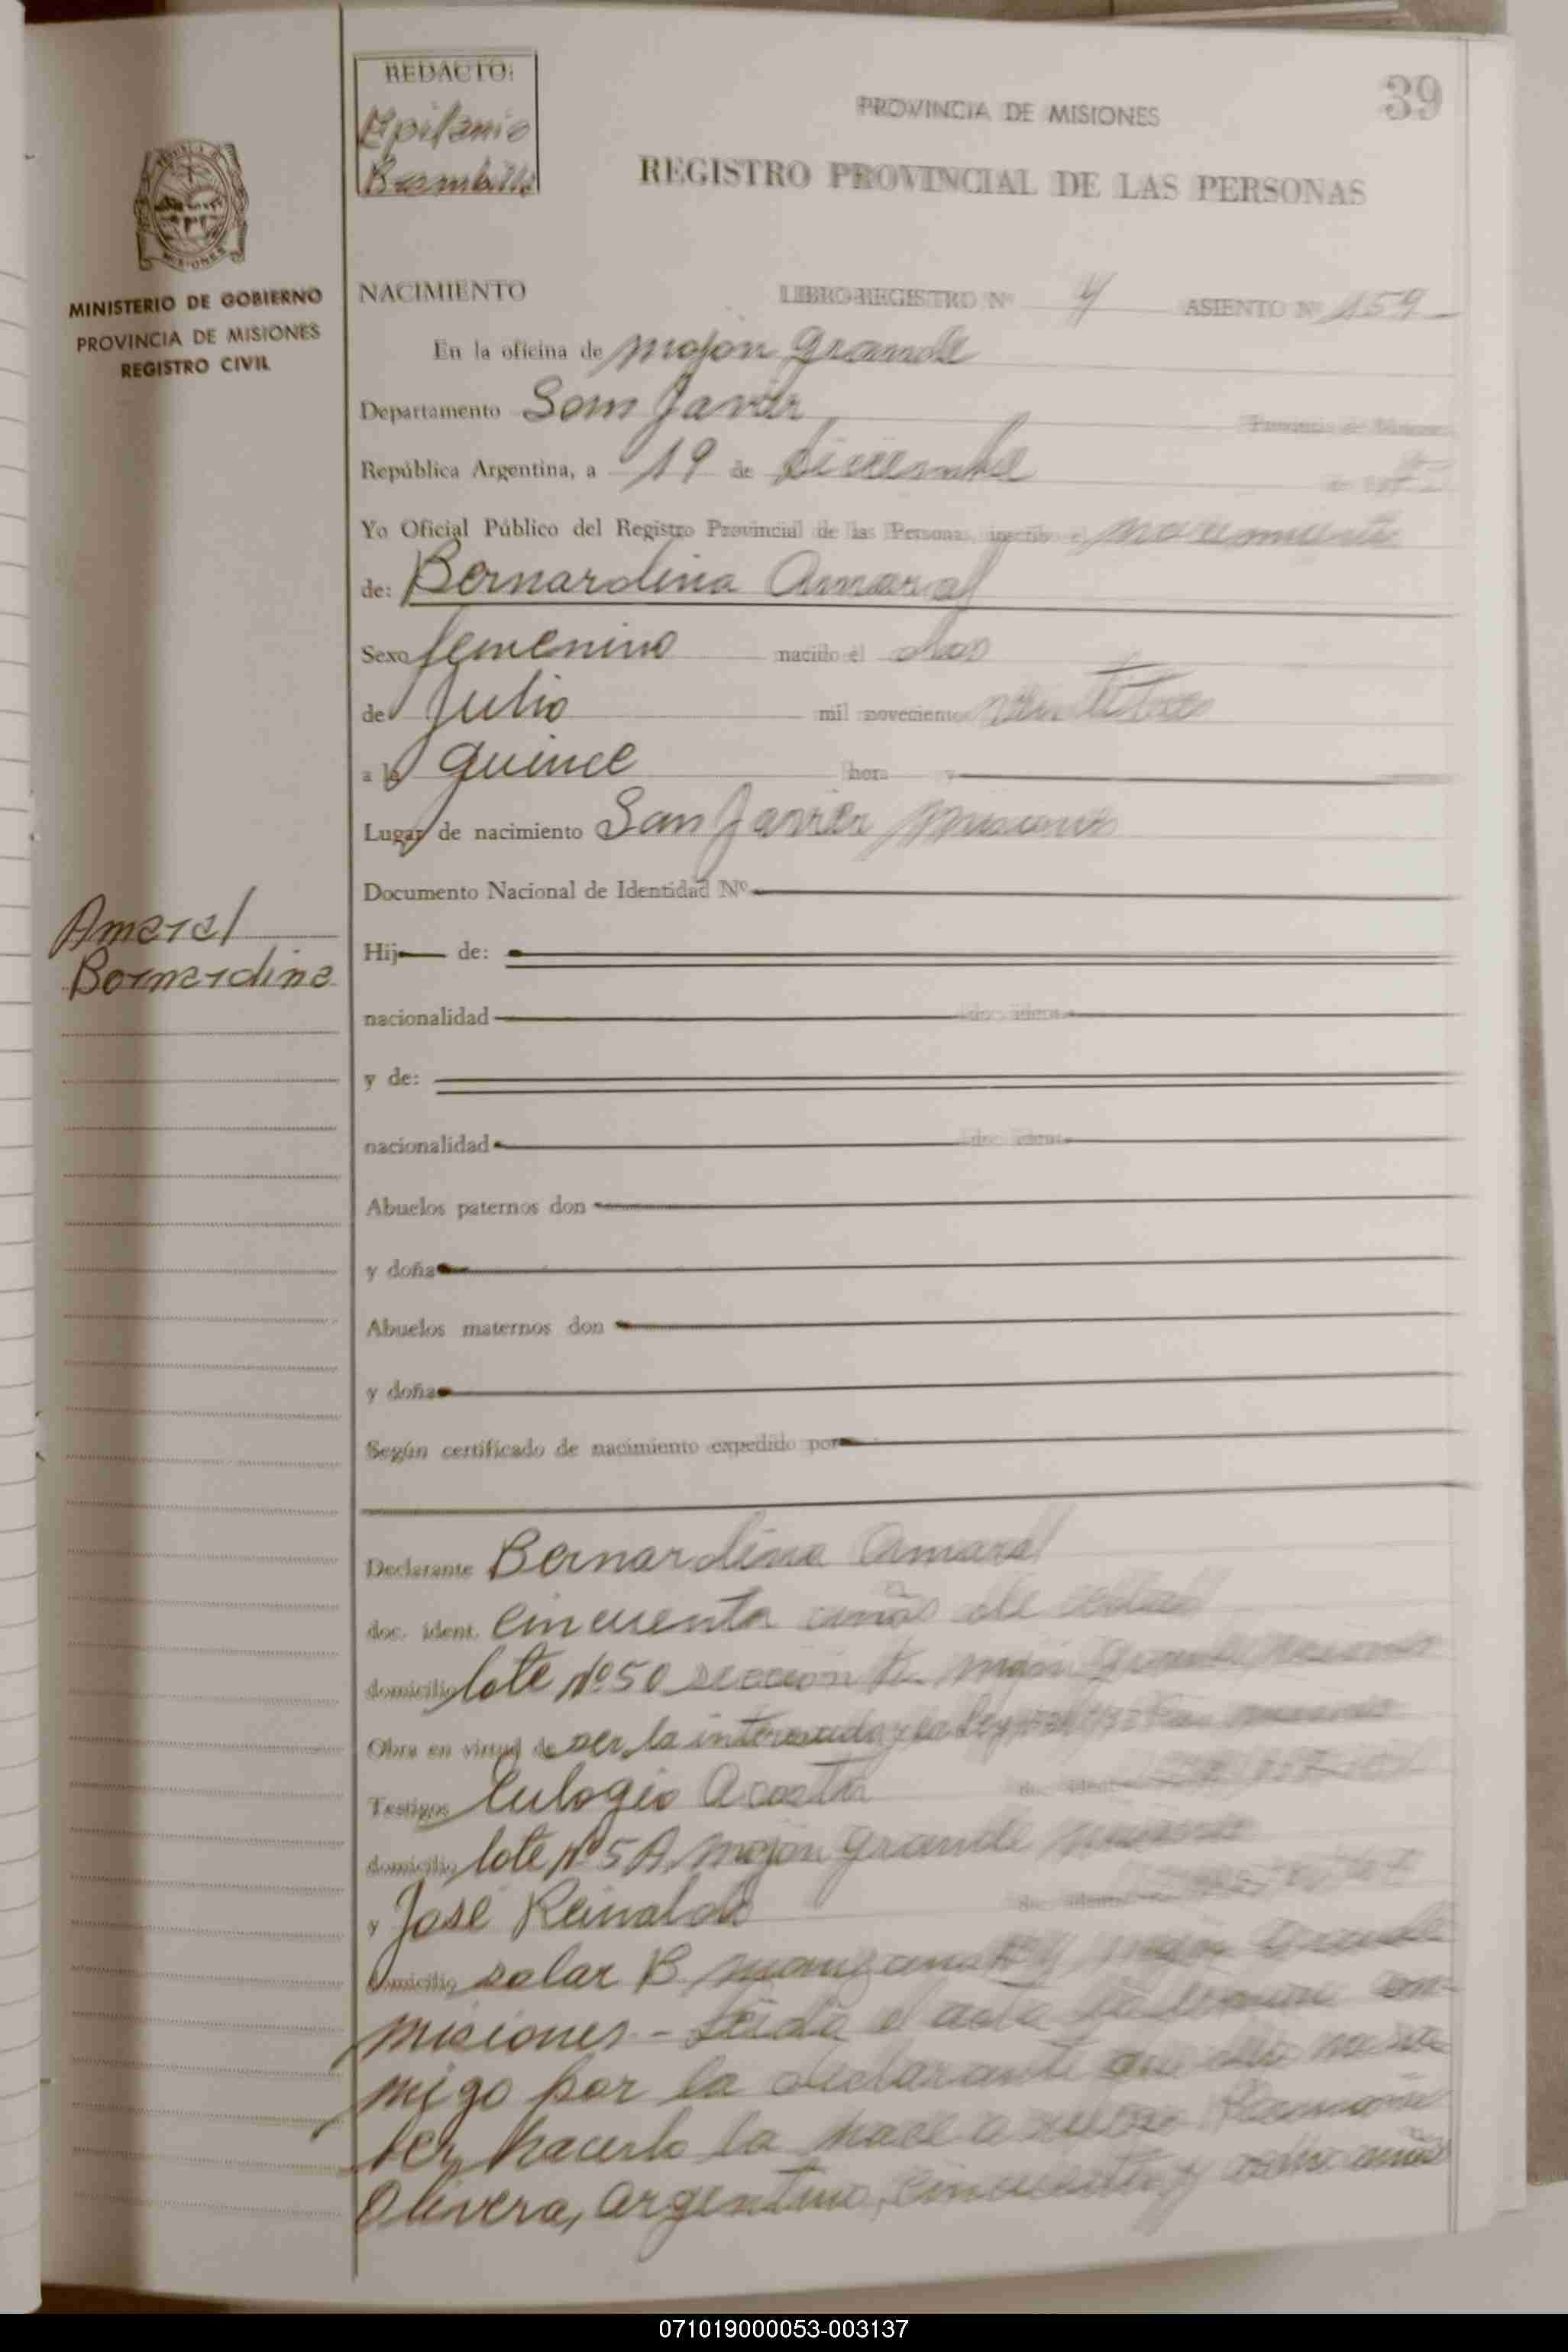 REDACTO:
Epifanio
39
PROVINCIA DE MISIONES
REGISTRO PROVINCIAL DE LAS PERSONAS
MISIONES
MINISTERIO DE GOBIERNO
PROVINCIA DE MISIONES
REGISTRO CIVIL
NACIMIENTO LIBRO REGISTRO Nº ASIENTO Nº 159
En la oficina de mojon grande
Departamento San Javier Provincia de Misiones
República Argentina, a 19 de diciembre
Yo Oficial Público del Registro Provincial de las Personas, inscribo el nacimiento
de: Bernardina Amaral
Sexo femenino nacido el dos
de Julio mil novecientos veintitres
a la quince hora
Lugar de nacimiento San Javier Misiones
Documento Nacional de Identidad Nº
Amaral
Bernardina
Hij de:
nacionalidad doc. ident.
y de:
nacionalidad doc. ident.
Abuelos paternos don
y doña
Abuelos maternos don
y doña
Según certificado de nacimiento expedido por
Declarante Bernardina Amaral
doc. ident. cincuenta años de edad
domicilio lote Nº 50 sección mojon grande misiones
Obra en virtud de ser la interesada y la Ley
Testigos Eulogio Acosta doc. ident.
domicilio lote Nº 5 A mojon grande misiones
y José Reinaldo doc. ident.
domicilio solar B manzana Nº mojon grande
misiones - Leida el acta la firma con-
migo por la declarante que dice no sa-
ber hacerlo la hace a ruego
Olivera, argentino, cincuenta y ocho años
071019000053-003137